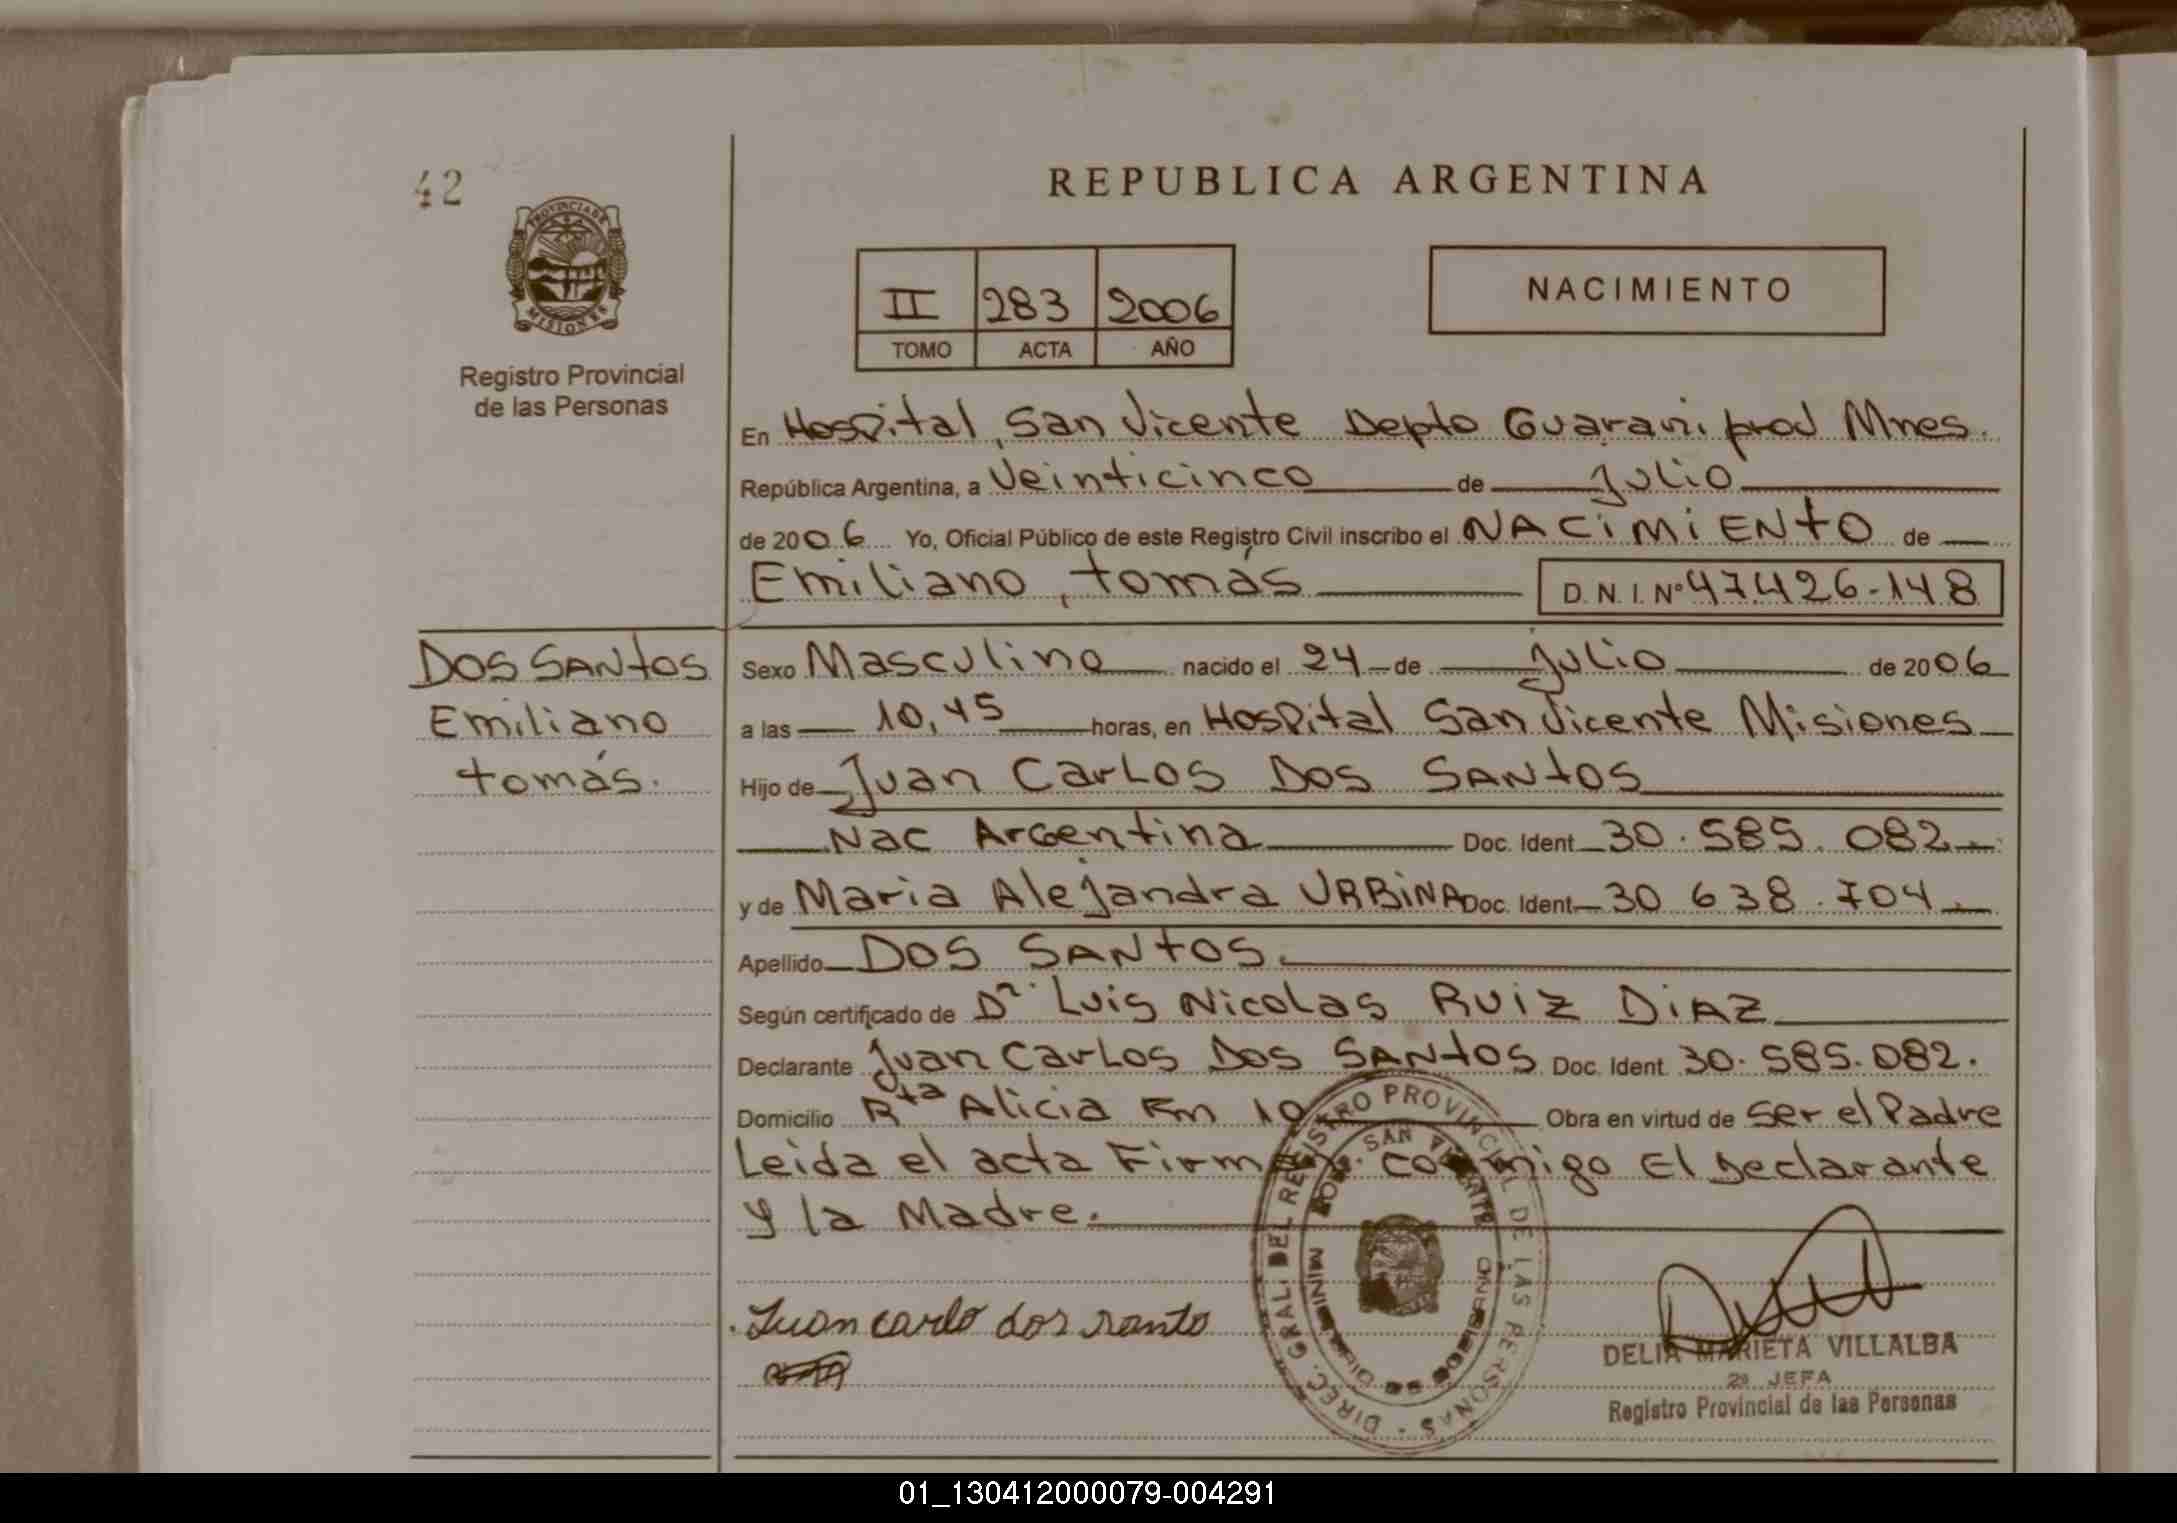 42
PROVINCIA DE
MISIONES
Registro Provincial
de las Personas
REPUBLICA ARGENTINA
II 283 2006
TOMO ACTA AÑO
NACIMIENTO
En Hospital, San Vicente Depto Guarani prov Mnes.
República Argentina, a Veinticinco de Julio
de 2006 Yo, Oficial Público de este Registro Civil inscribo el NACIMIENTO de
Emiliano, tomás D. N. I. Nº 47.426-148
DOS SANtOS
Emiliano
tomás.
Sexo Masculino nacido el 24 de Julio de 2006
a las 10,45 horas, en Hospital San Vicente Misiones
Hijo de Juan Carlos Dos SANtOS
Nac Argentina Doc. Ident 30.585.082
y de Maria Alejandra URBiNA Doc. Ident 30 638.704
Apellido DOS SANtOS.
Según certificado de Dr. Luis Nicolas RUIZ DiAZ
Declarante Juan Carlos Dos SANtOS Doc. Ident. 30.585.082.
Domicilio Rta Alicia Km 10 Obra en virtud de Ser el Padre
Leida el acta Firm conmigo El Declarante
y la Madre.
Juan carlo dos santo
DIREC. GRAL. DEL REGISTRO PROVINCIAL DE LAS PERSONAS
SAN VICENTE
DELIA MARIETA VILLALBA
2ª JEFA
Registro Provincial de las Personas
01_130412000079-004291